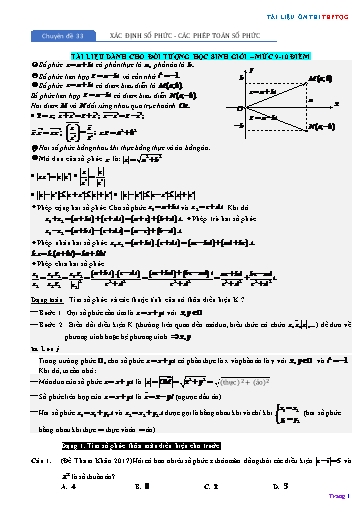 TÀI LIỆU ÔN THI THPTQG
Chuyên đề 33
XÁC ĐỊNH SỐ PHỨC - CÁC PHÉP TOÁN SỐ PHỨC
TÀI LIỆU DÀNH CHO ĐỐI TƯỢNG HỌC SINH GIỎI – MỨC 9-10 ĐIỂM
Số phức z = a + bi có phần thực là a, phần ảo là b.
Số phức liên hợp z̄ = a − bi và cần nhớ i² = −1.
Số phức z = a + bi có điểm biểu diễn là M(a;b).
Số phức liên hợp z̄ = a − bi có điểm biểu diễn N(a;−b).
Hai điểm M và N đối xứng nhau qua trục hoành Ox.
y
b
M(a;b)
z = a + bi
O
a
x
z̄ = a − bi
−b
N(a;−b)
Hai số phức bằng nhau khi thực bằng thực và ảo bằng ảo.
Mô đun của số phức z là: |z| = √(a² + b²)
Phép cộng hai số phức Cho số phức z₁ = a + bi và z₂ = c + di. Khi đó
z₁ + z₂ = (a + bi) + (c + di) = (a + c) + (b + d).i Phép trừ hai số phức
z₁ − z₂ = (a + bi) − (c + di) = (a − c) + (b − d).i
Phép nhân hai số phức z₁.z₂ = (a + bi).(c + di) = (ac − bd) + (ad + bc).i
k.z = k.(a + bi) = ka + kbi
Phép chia hai số phức
Dạng toán. Tìm số phức và các thuộc tính của nó thỏa điều kiện K?
— Bước 1. Gọi số phức cần tìm là z = x + yi với x, y ∈
— Bước 2. Biến đổi điều kiện K (thường liên quan đến môđun, biểu thức có chứa z, z̄, |z|,...) để đưa về
phương trình hoặc hệ phương trình ⇒ x, y
Lưu ý
Trong trường phức, cho số phức z = x + yi có phần thực là x và phần ảo là y với x, y ∈ và i² = −1.
Khi đó, ta cần nhớ:
— Môđun của số phức z = x + yi là |z| = |OM| = √(x² + y²) = √((thực)² + (ảo)²)
— Số phức liên hợp của z = x + yi là z̄ = x − yi (ngược dấu ảo)
— Hai số phức z₁ = x₁ + y₁i và z₂ = x₂ + y₂i được gọi là bằng nhau khi và chỉ khi { x₁ = x₂ y₁ = y₂ (hai số phức
bằng nhau khi thực = thực và ảo = ảo)
Dạng 1. Tìm số phức thỏa mãn điều kiện cho trước
Câu 1. (Đề Tham Khảo 2017) Hỏi có bao nhiêu số phức z thỏa mãn đồng thời các điều kiện |z − i| = 5 và
z² là số thuần ảo?
A. 4 B. 0 C. 2 D. 3
Trang 1